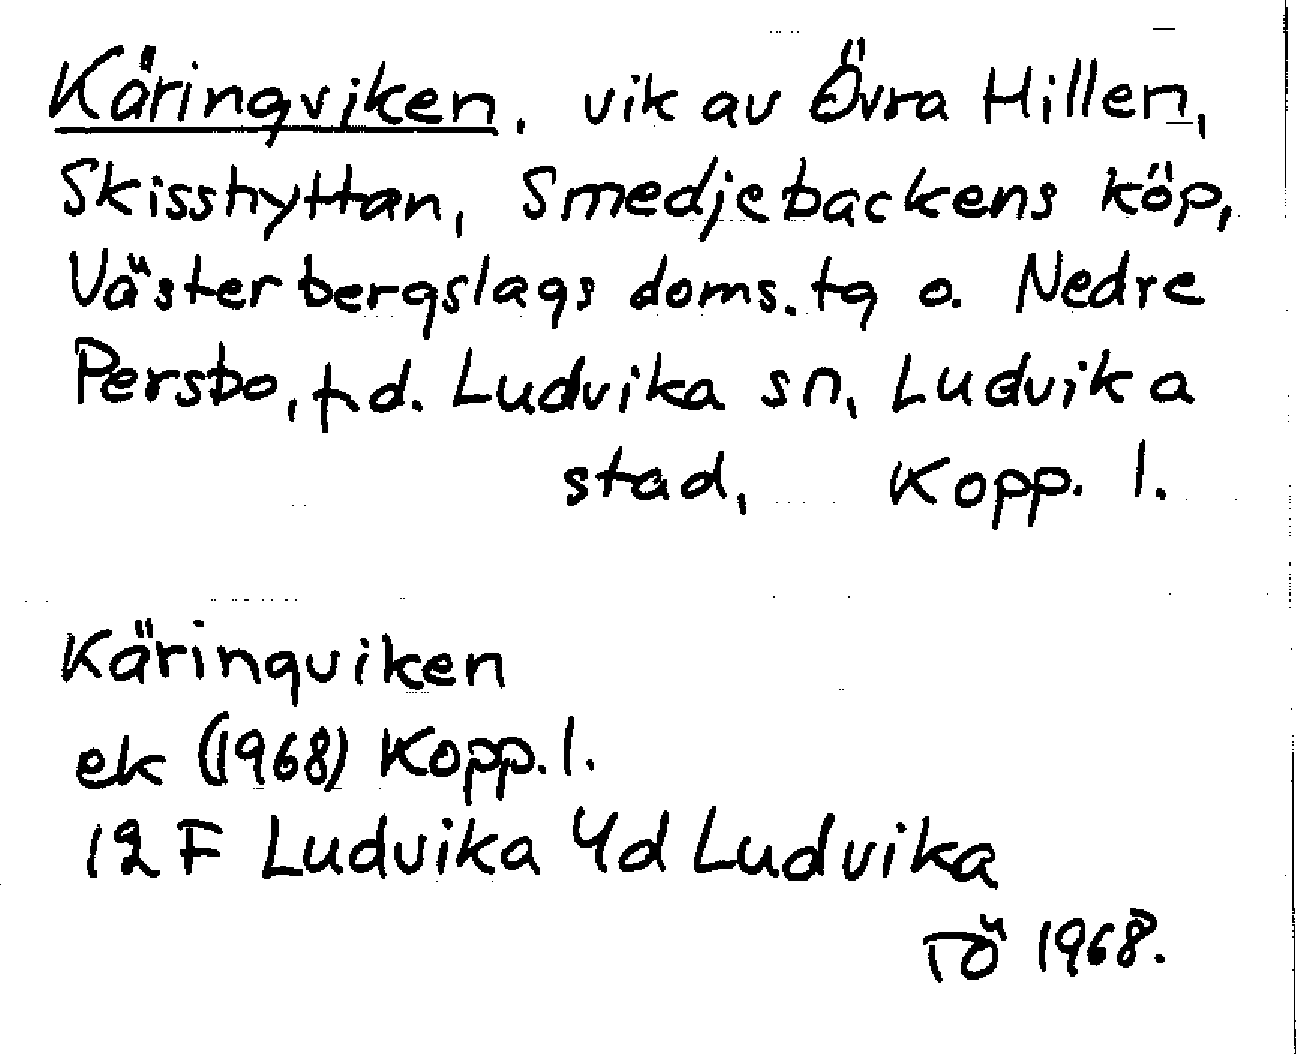 Käringviken, vik av Övra Hillen,
Skisshyttan, Smedjebackens köp,
Västerbergslags doms.tg o. Nedre
Persbo, f.d. Ludvika sn, Ludvika
stad, Kopp. l.
Käringviken
ek (1968) Kopp. l.
12 F Ludvika 4d Ludvika
TÖ 1968.